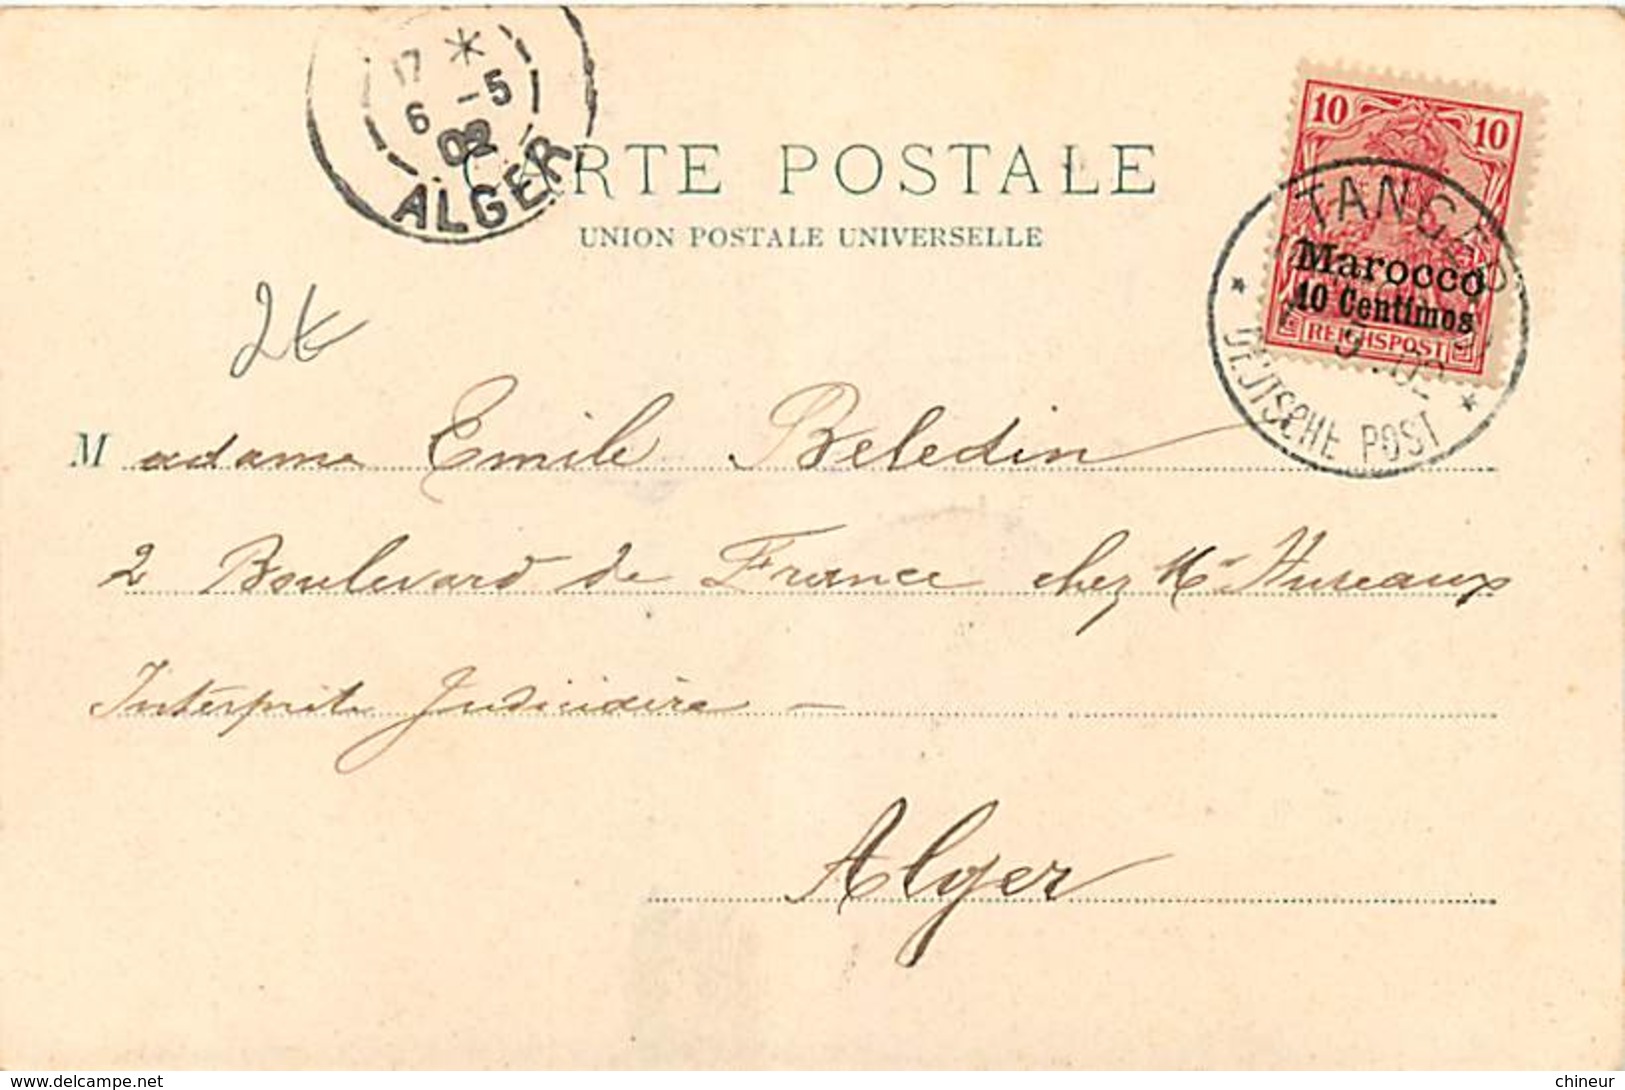 17 *
6 -5
02
ALGER
CARTE POSTALE
UNION POSTALE UNIVERSELLE
10 10
Marocco
10 Centimos
REICHSPOST
TANGER
* DEUTSCHE POST *
Madame Emile Beledin
2 Boulevard de France chez Mr Hureaux
Interprete Judiciaire —
Alger
www.delcampe.net
chineur